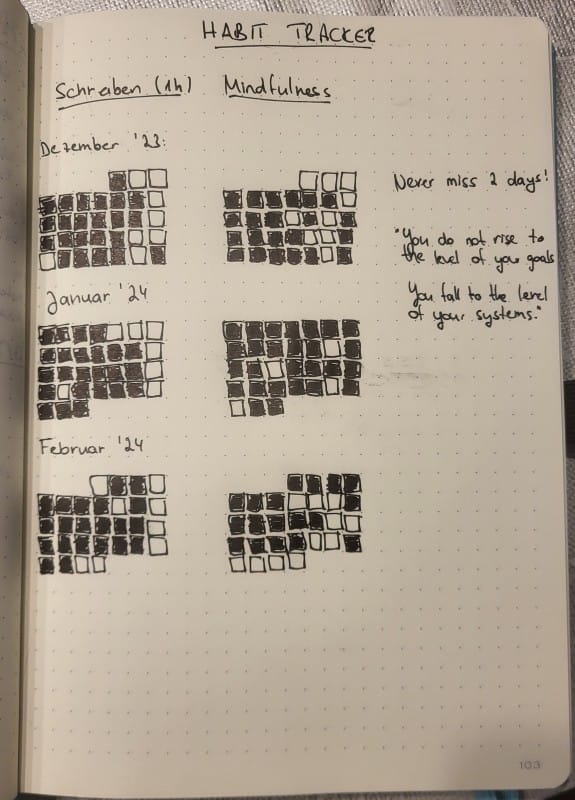 HABIT TRACKER
Schreiben (1h)
Mindfulness
Dezember '23:
Never miss 2 days!
"You do not rise to
the level of your goals
You fall to the level
of your systems."
Januar '24
Februar '24
103